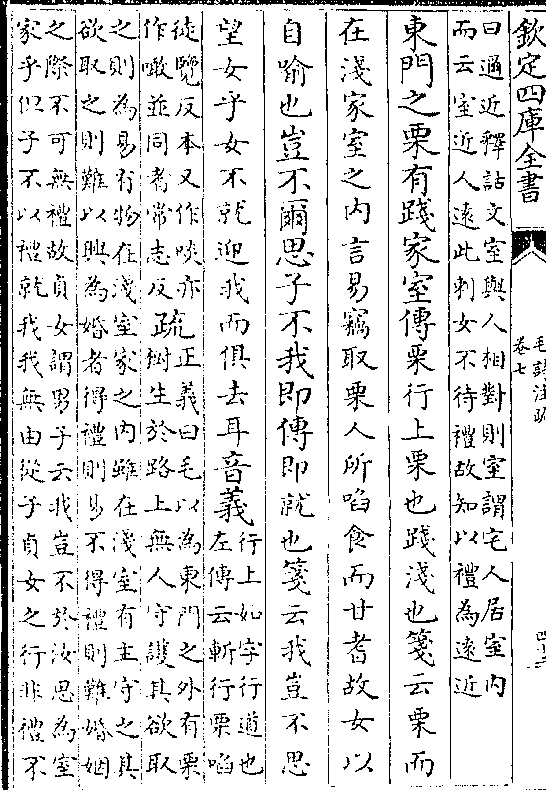 欽定四庫全書
毛詩注疏
卷七
曰邇近釋詁文室與人相對則室謂宅人居室内
而云室近人遠此刺女不待禮故知以禮為遠近
東門之栗有踐家室傳栗行上栗也踐淺也箋云栗而
在淺家室之内言易竊取栗人所啗食而甘耆故女以
自喻也豈不爾思子不我即傳即就也箋云我豈不思
望女乎女不就迎我而俱去耳音義
行上如字行道也
左傳云斬行栗啗
徒覽反本又作啖亦
作噉並同耆常志反
疏
正義曰毛以為東門之外有栗
樹生於路上無人守護其欲取
之則為易有物在淺室家之内雖在淺室有主守之其
欲取之則難以興為婚者得禮則易不得禮則難婚姻
之際不可無禮故貞女謂男子云我豈不於汝思為室
家乎但子不以禮就我我無由從子貞女之行非禮不